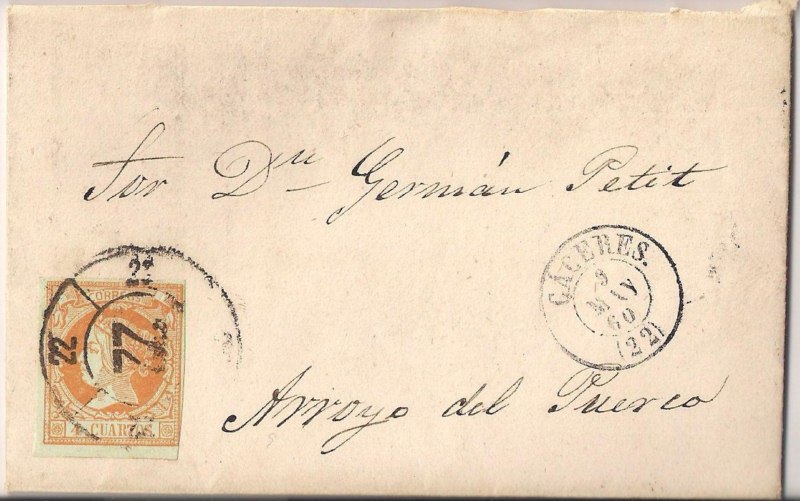 Sor Dn Germán Petit
CÁCERES.
MAY
60
(22)
22
22
77
CORREOS
4 CUARTOS
Arroyo del Puerco